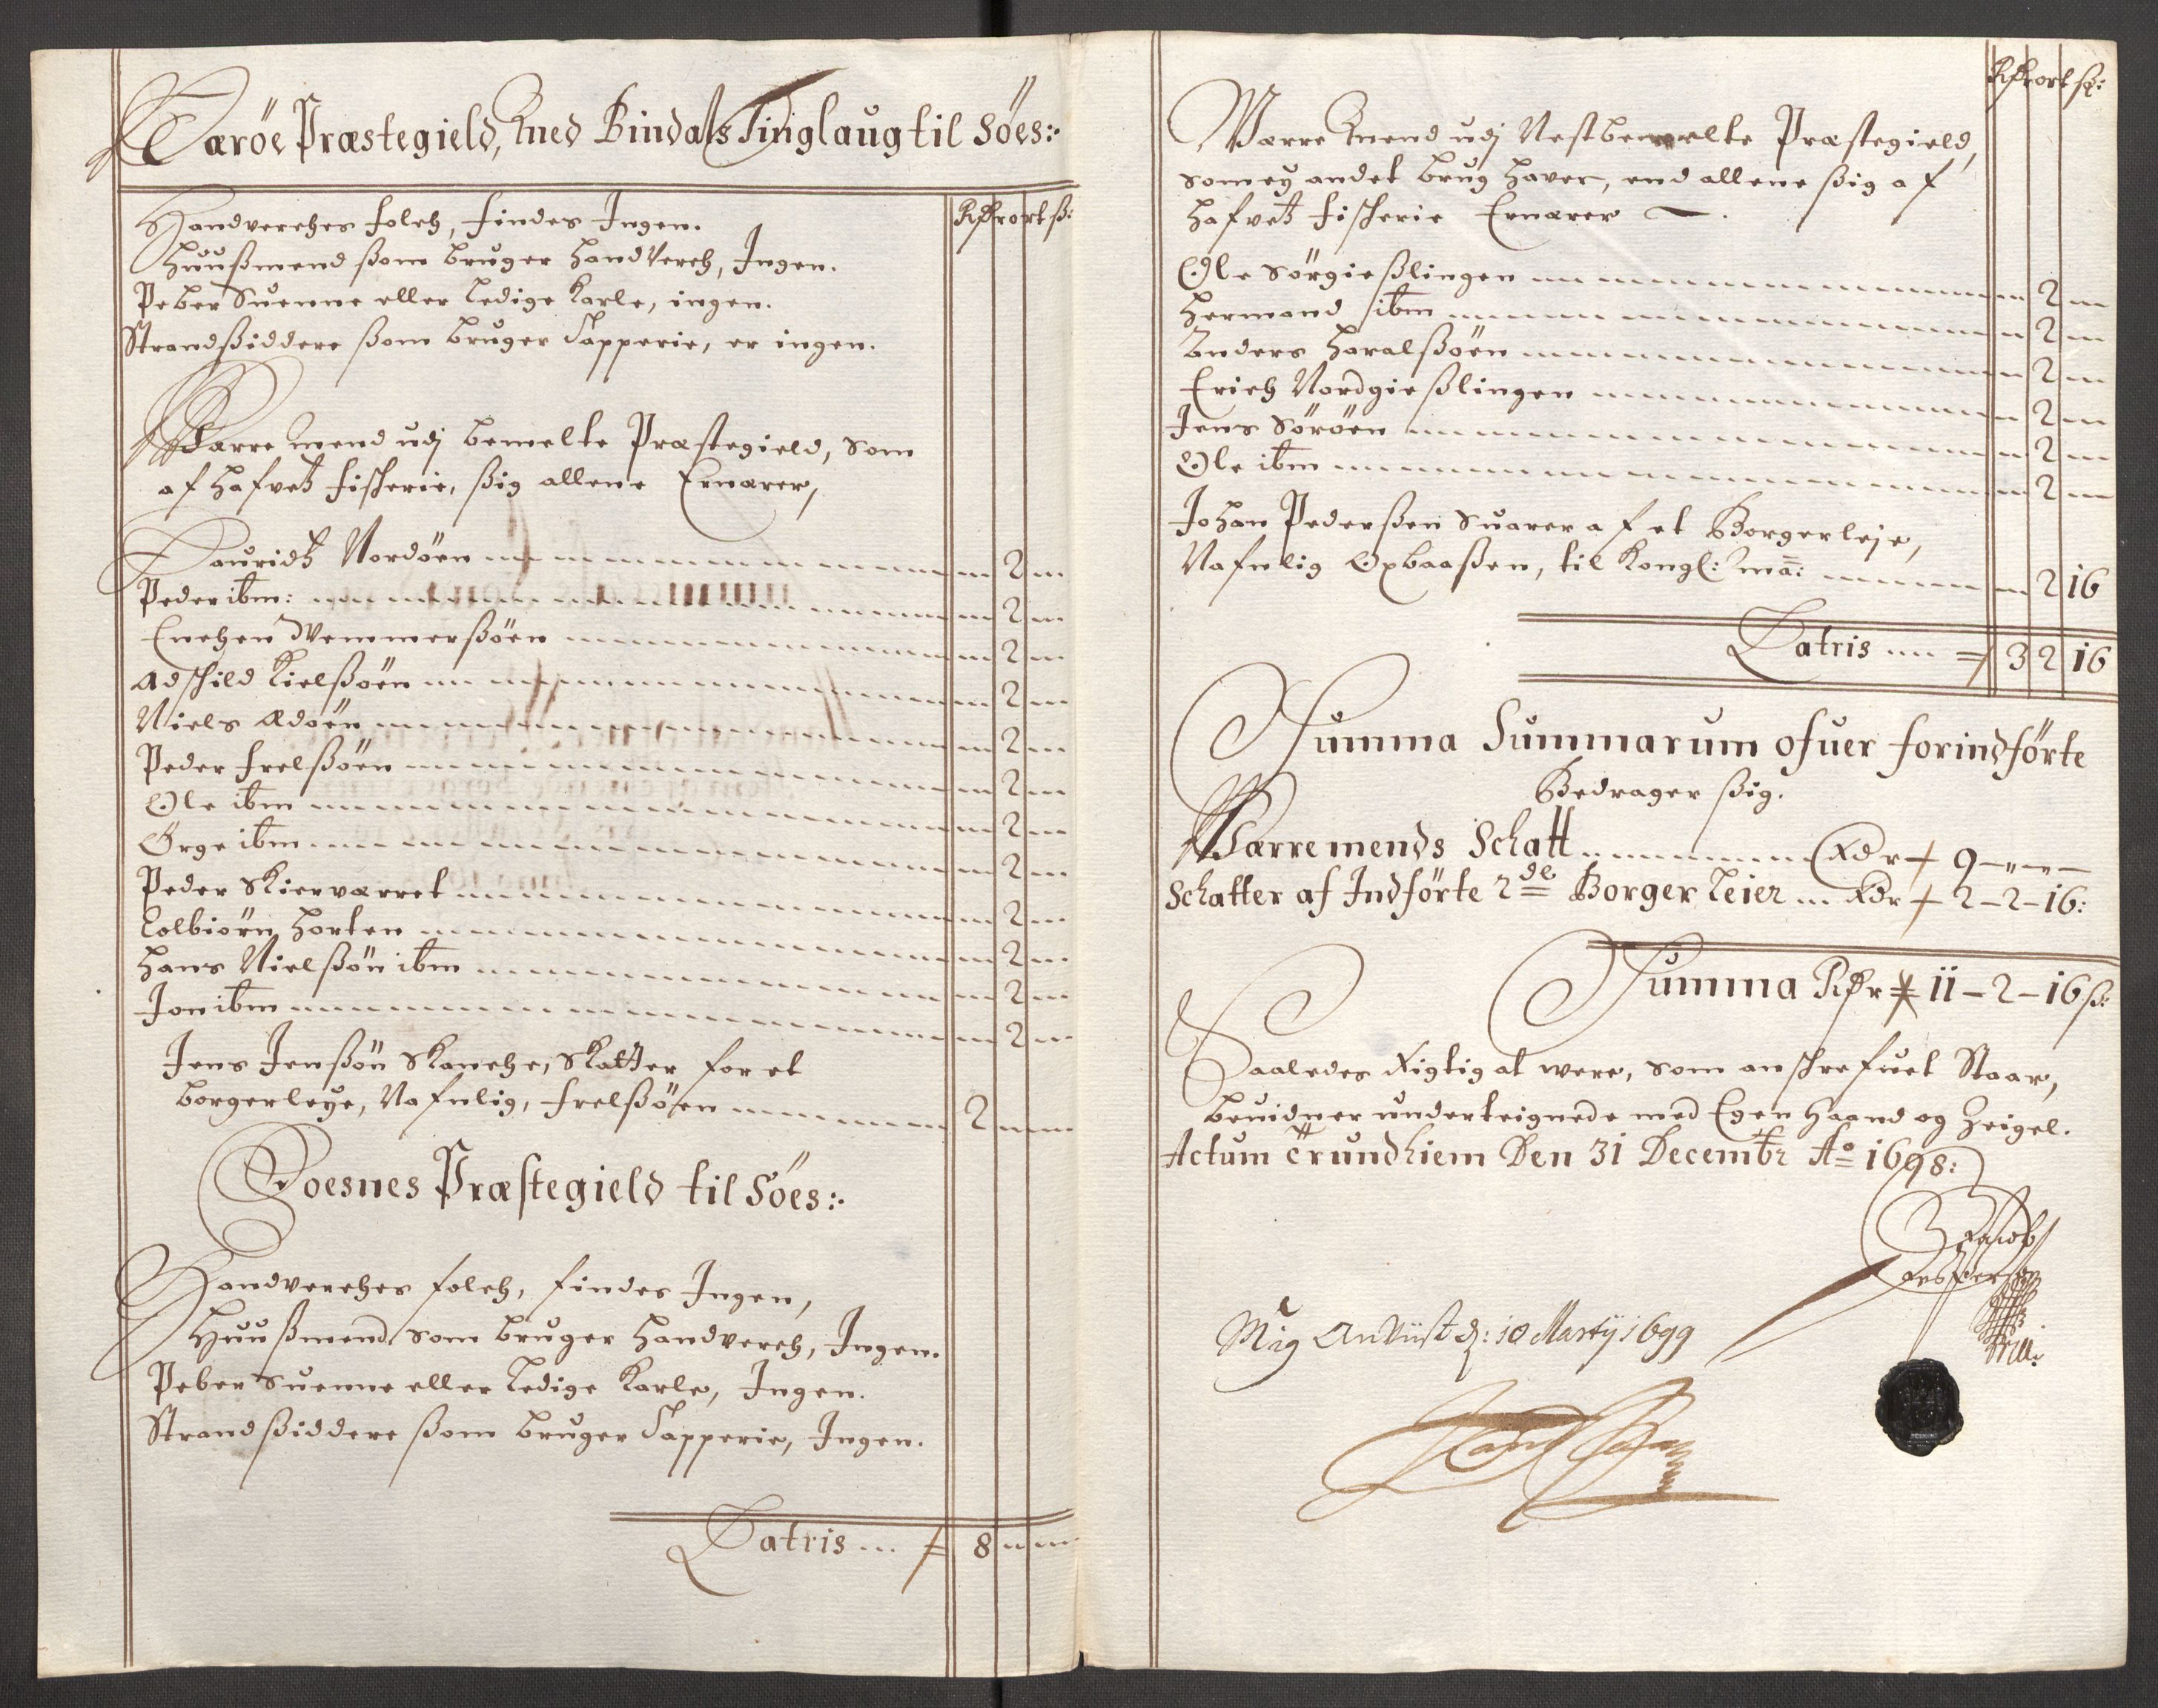 Nærøe Præstegield, med Bindals Tinglaug til Söes:
Rdr ort ß:
Handverches folch, findes Ingen.
Huußmend ßom bruger HandVerch, Ingen.
Peber Suenne eller Ledige Karle, ingen.
Strandßiddere ßom bruger Tapperie, er ingen.
Værre mend udj bemelte Præstegield, Som
af hafvetz fischerie, ßig allene Ernærer,
Lauridtz Nordöen 2
Peder ibm: 2
Enchen Vemmerßöen 2
Adschild Kielßöen 2
Niels Ædöen 2
Peder frelßöen 2
Ole ibm 2
Örge ibm 2
Peder Skierværret 2
Colbiörn Horten 2
Hans Nielßön ibm 2
Jon ibm 2
Jens Jenßön Skanche, Skatter for et
borgerleye, Nafnlig, frelßöen 2
Foesnes Præstegield til Söes:
Handverches folch, findes Ingen,
Huußmend som bruger Handverch, Ingen.
Peber Suenne eller Ledige Karle, Ingen.
Strandßiddere ßom bruger Tapperie, Ingen.
Latris ... 8
Rdr ort ß:
Værre mend udj Nestbemelte Præstegield,
som ey andet brug haver, end allene ßig af
hafvetz fischerie Ernærer
Ole Sörgießlingen 2
Hermand ibm 2
Anders Haralßöen 2
Erich Nordgießlingen 2
Jens Söröen 2
Ole ibm 2
Johan Pederßen Suarer af et Borgerleje,
Nafnlig Oxbaaßen, til Kongl: ma: 2 16
Latris 3 2 16
Summa Summarum ofuer forindförte
Bedrager ßig.
Værremends Schatt Rdr 9
Schatter af Indförte 2de Borger Leier ... Rdr 2-2-16:
Summa Rdr 11-2-16 ß:
Saaledes Rigtig at were, som anschrefuet Staar,
beuidner underteignede med Egen Haand og Zeigel.
Actum Trundhiem Den 31 Decembr Ao 1698:
Jacob
Jespersen
Mig Anviist d: 10 Martij 1699